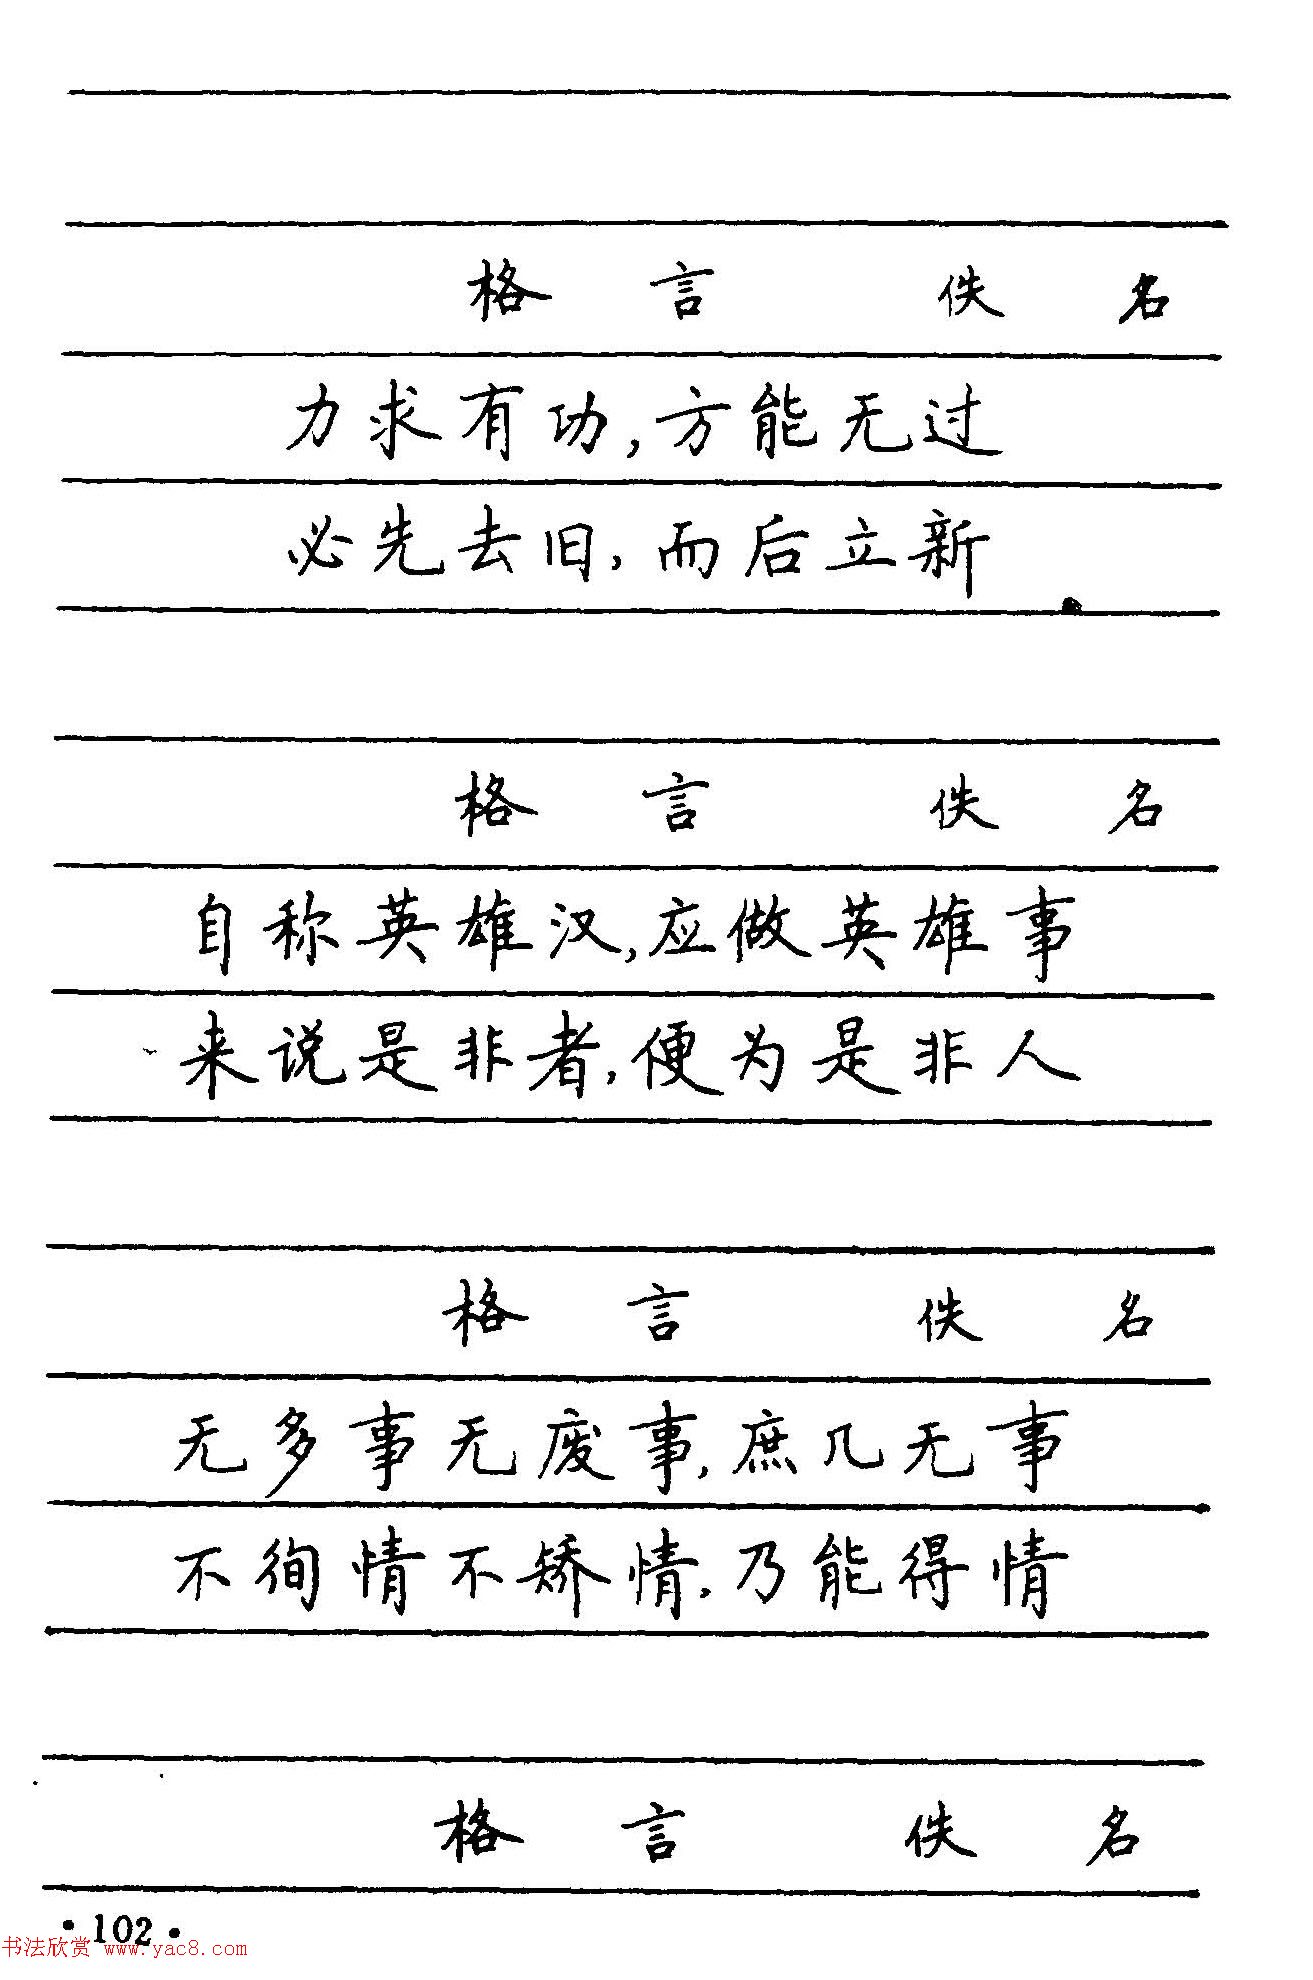 格言 佚名
力求有功,方能无过
必先去旧,而后立新
格言 佚名
自称英雄汉,应做英雄事
来说是非者,便为是非人
格言 佚名
无多事无废事,庶几无事
不徇情不矫情,乃能得情
格言 佚名
·102·
书法欣赏 www.yac8.com